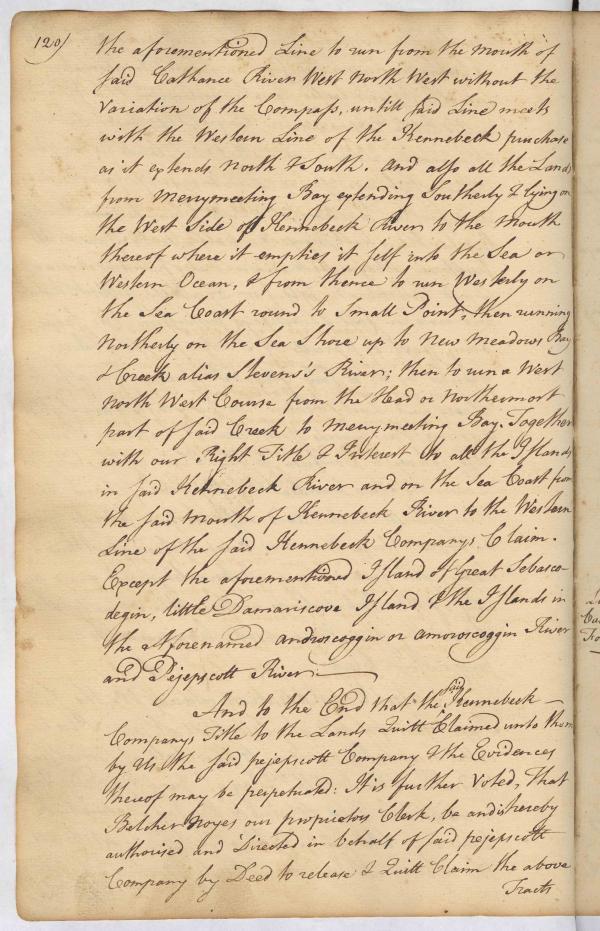 120)
the aforementioned Line to run from the mouth of
said Cathance River West North West without the
Variation of the Compass, untill said Line meets
with the Western Line of the Kennebeck purchase
as it extends North & South. And also all the Lands
from Merrymeeting Bay extending Southerly & lying on
the West Side of Kennebeck River to the Mouth
thereof where it empties it self into the Sea or
Western Ocean, & from thence to run Westerly on
the Sea Coast round to Small Point, then running
Northerly on the Sea Shore up to New Meadows Bay
& Creek alias Stevens's River; then to run a West
North West Course from the Head or Northermost
part of said Creek to Merrymeeting Bay. Together
with our Right Title & Interest to all the Islands
in said Kennebeck River and on the Sea Coast from
the said mouth of Kennebeck River to the Western
Line of the said Kennebeck Companys Claim.
Except the aforementioned Island of Great Sebasco-
degin, little Damariscove Island & the Islands in
the Aforenamed androscoggin or amoroscoggin River
and Pejepscott River.
And to the End that the said Kennebeck
Companys Title to the Lands Quitt Claimed unto them
by Us the said pejepscott Company & the Evidences
thereof may be perpetuated: It is further Voted, That
Belcher Noyes our proprietors Clerk, be and is hereby
authorised and Directed in behalf of said pejepscott
Company by Deed to release & Quitt Claim the above
Tracts